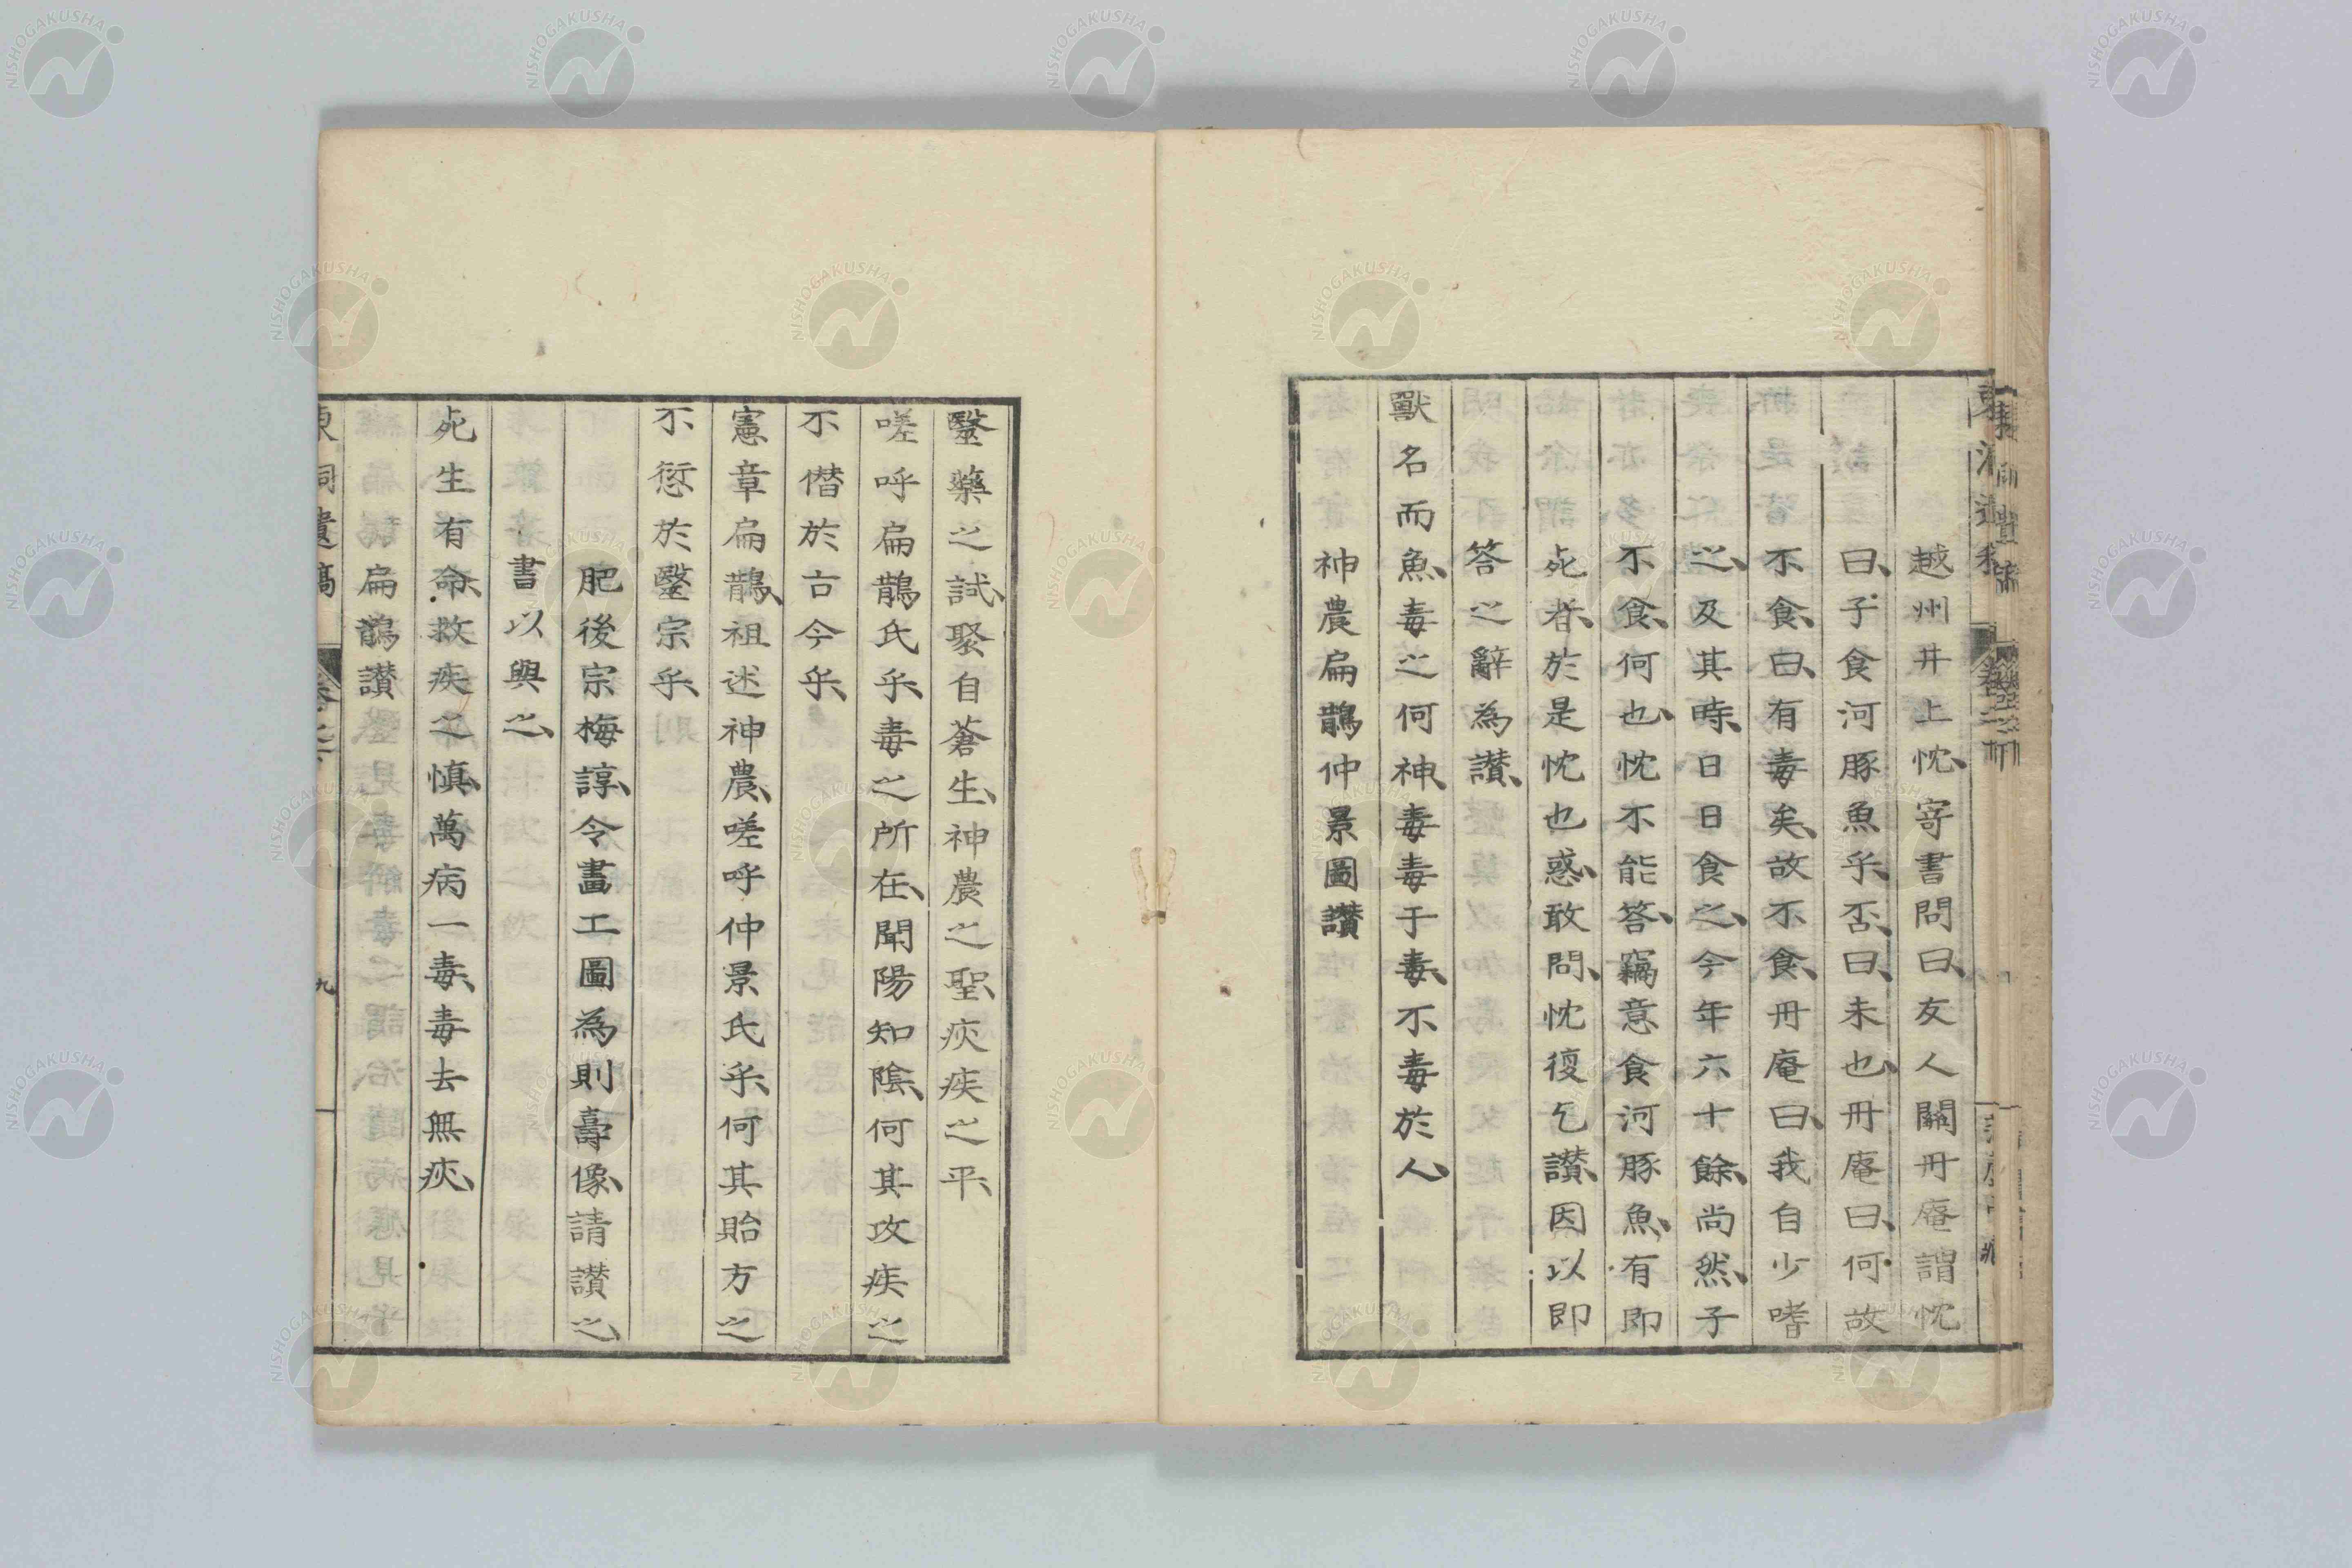 越州井上忱、寄書問曰、友人關冊庵謂忱
曰、子食河豚魚乎、否、曰、未也、冊庵曰、何故
不食、曰、有毒矣、故不食、冊庵曰、我自少嗜
之、及其時、日日食之、今年六十餘、尚然、子
不食、何也、忱不能答、竊意食河豚魚、有即
死者、於是忱也惑、敢問、忱復乞讃、因以即
答之辭為讃、
獸名而魚、毒之何神、毒毒于毒、不毒於人、
神農扁鵲仲景圖讃
毉藥之試、聚自蒼生、神農之聖、疢疾之平、
嗟呼扁鵲氏乎、毒之所在、聞陽知陰、何其攻疾之
不僭於古今乎、
憲章扁鵲、祖述神農、嗟呼仲景氏乎、何其貽方之
不愆於毉宗乎、
肥後宗梅諄、令畫工圖為則壽像、請讃之、
書以與之、
死生有命、救疾之慎、萬病一毒、毒去無疢、
扁鵲讃
東洞遺稿 卷之下 九
NISHOGAKUSHA